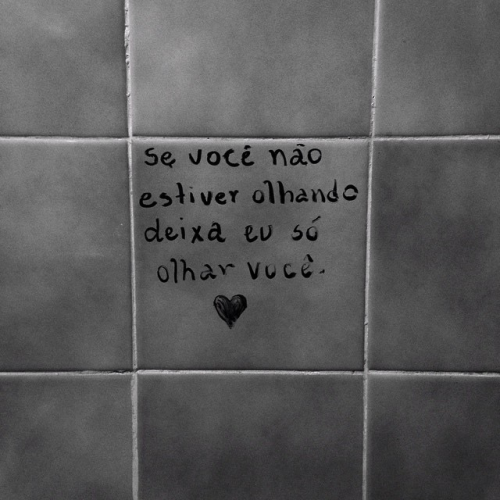 se você não
estiver olhando
deixa eu só
olhar você.